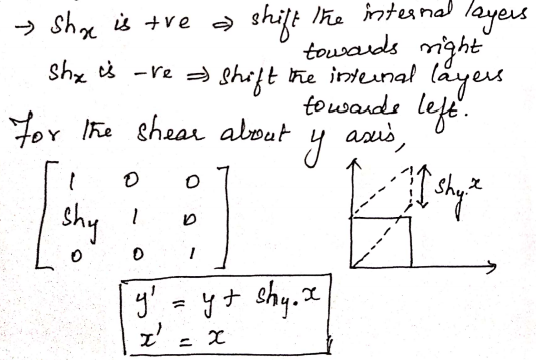 → Shx is +ve ⇒ shift the internal layers
towards right
Shx is -ve ⇒ shift the internal layers
towards left.
For the shear about y axis,
1 0 0
Shy 1 0
0 0 1
Shy.x
y' = y + Shy.x
x' = x